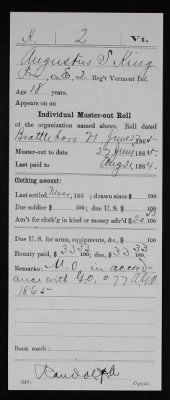 K. 2 Vt.
Augustus S. King
Pvt, Co. E, 2 Reg't Vermont Inf.
Age 18 years.
Appears on an
Individual Muster-out Roll
of the organization named above. Roll dated
Brattleboro Vt June 27, 1865.
Muster-out to date 27 June, 1865.
Last paid to Aug 31, 1864.
Clothing account:
Last settled Never, 186 ; drawn since $ 100
Due soldier $ 100; due U. S. $ 100
Am't for cloth'g in kind or money adv'd $ 100
Due U. S. for arms, equipments, &c., $ 100
Bounty paid $ 33 33/100; due $ 33 33/100
Remarks: M. O. in accord-
ance with G.O. #77 A.G.O.
1865
Book mark:
Copyist.